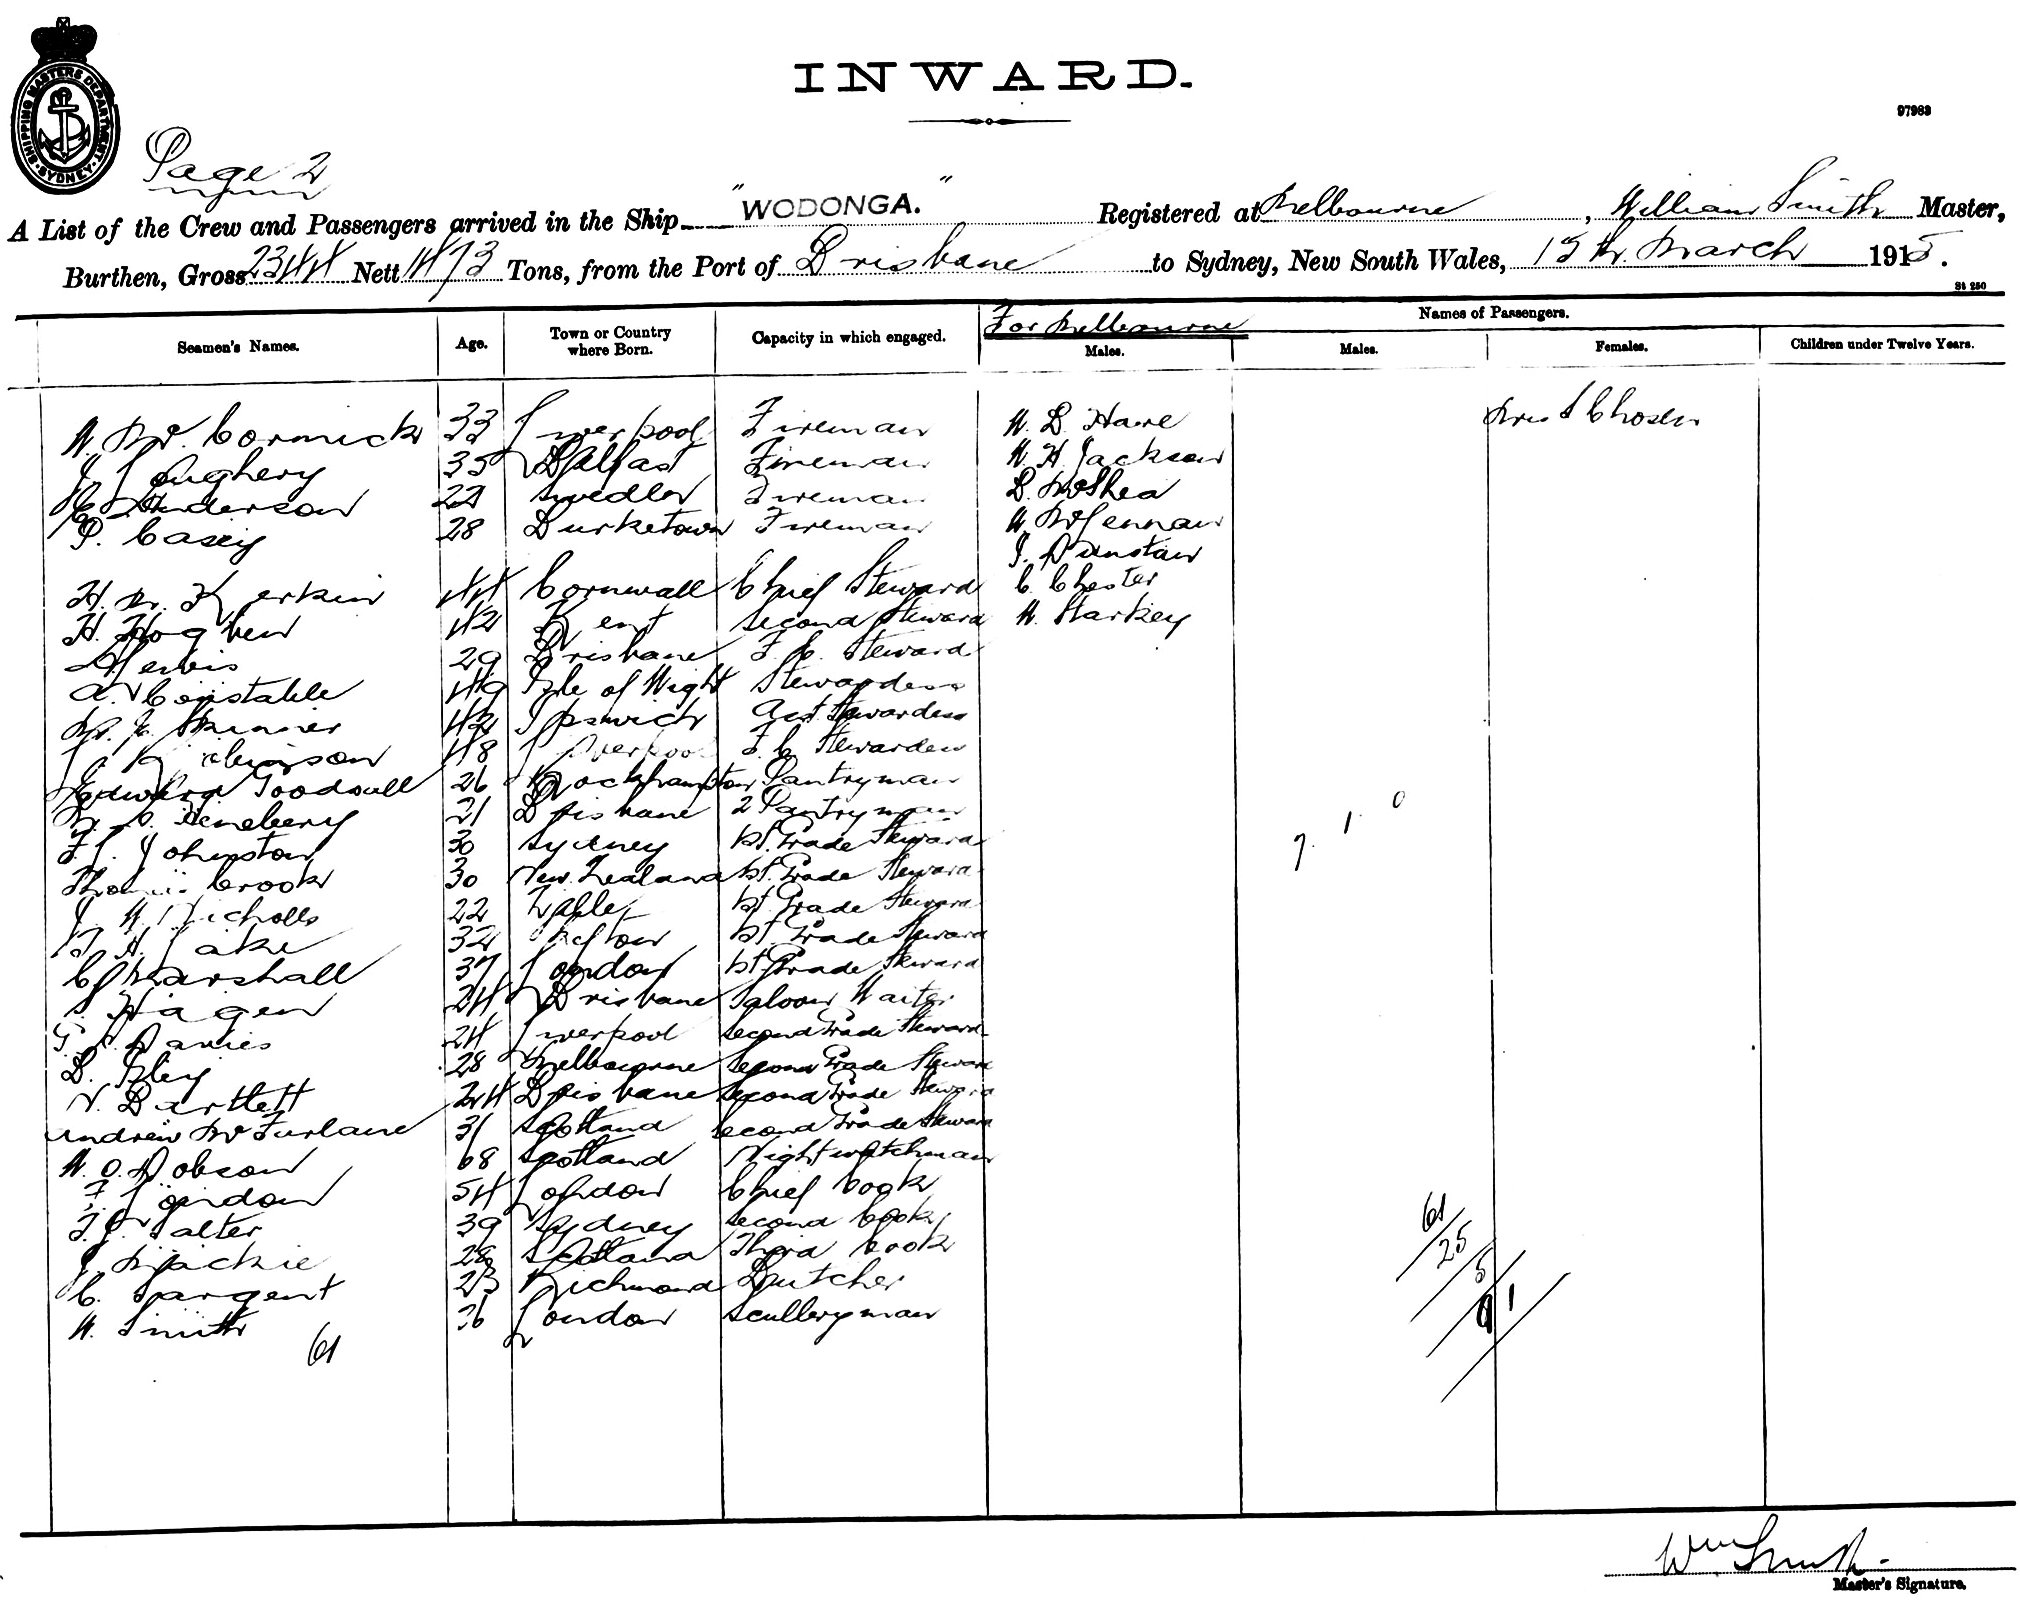 INWARD.
97983
SHIPPING MASTERS DEPARTMENT SYDNEY
Page 2
A List of the Crew and Passengers arrived in the Ship "WODONGA." Registered at Melbourne, William Smith Master,
Burthen, Gross 2344 Nett 1473 Tons, from the Port of Brisbane to Sydney, New South Wales, 15th. March 1915.
St 250
Seamen's Names. Age. Town or Country where Born. Capacity in which engaged. For Melbourne Names of Passengers.
Males. Males. Females. Children under Twelve Years.
W. McCormick 33 Liverpool Fireman W. D. Hare
J. Loughery 35 Belfast Fireman W. H. Jackson
Anderson 22 Fireman D. McShea
P. Casey 28 Burketown Fireman W. McLennan
J. Dunstan
H. M. Kerkin 44 Cornwall Chief Steward C. Chester
H. Hogben 42 Kent Second Steward W. Starkey
29 Brisbane F. C. Steward
A. Constable 49 Isle of Wight Stewardess
Skinner 42 Ipswich Asst. Stewardess
48 Liverpool F. C. Stewardess
Edward Goodsell 26 Rockhampton Pantryman
Heneberry 21 Brisbane 2 Pantryman
F. J. Johnston 30 Sydney 1st. Grade Steward
Thomas Crook 30 New Zealand 1st. Grade Steward
J. W. Nicholls 22 1st Grade Steward
H. Lake 32 1st. Grade Steward
C. Marshall 37 London 1st Grade Steward
Hagen 24 Brisbane Saloon Waiter
Davies 24 Liverpool Second Grade Steward
D. Isley 28 Melbourne Second Grade Steward
V. Bartlett 24 Brisbane Second Grade Steward
Andrew McFarlane 31 Scotland Second Grade Steward
W. O. Dobson 68 Scotland Nightwatchman
F. London 54 London Chief Cook
Salter 39 Sydney Second Cook
J. Mackie 28 Scotland Third Cook
C. Sargent 23 Richmond Butcher
W. Smith 36 London Sculleryman
61
7. 1. 0
61/25/5/91
Wm Smith
Master's Signature.